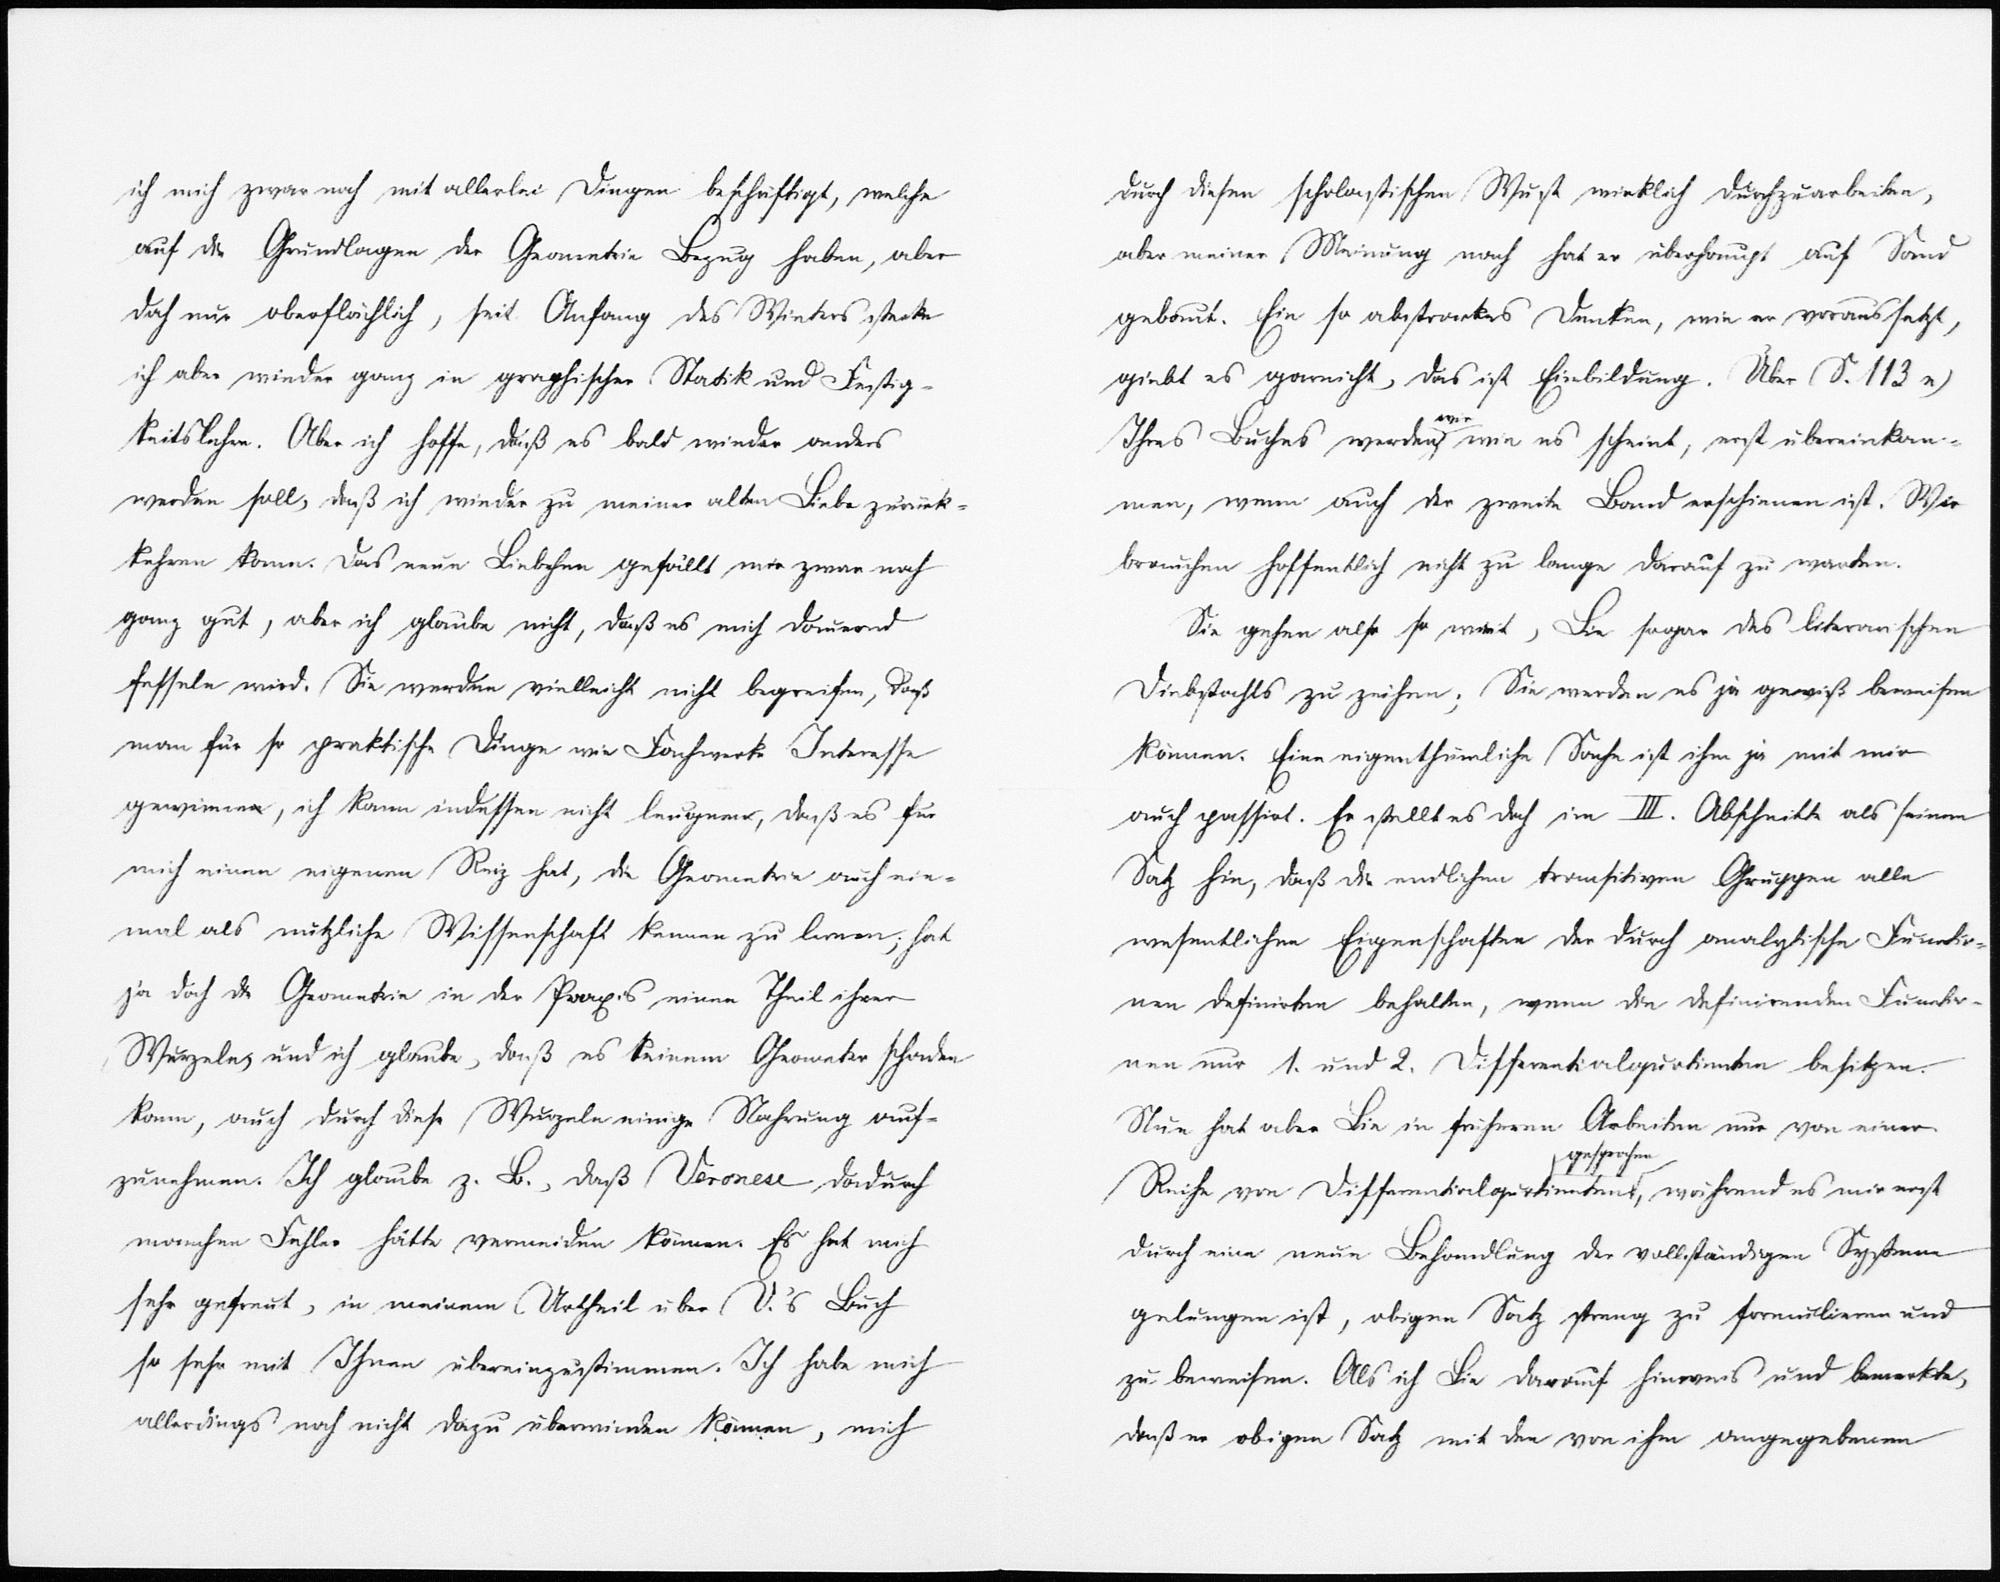 ich mich zwar noch mit allerlei Dingen beschäftigt, welche
auf die Grundlagen der Geometrie Bezug haben, aber
doch nur oberflächlich, seit Anfang des Winters stecke
ich aber wieder ganz in graphischer Statik und Festig-
keitslehre. Aber ich hoffe, daß es bald wieder anders
werden soll, daß ich wieder zu meiner alten Liebe zurück-
kehren kann. Das neue Liebchen gefällt mir zwar noch
ganz gut, aber ich glaube nicht, daß es mich dauernd
fesseln wird. Sie werden vielleicht nicht begreifen, daß
man für so praktische Dinge wie Fachwerke Interesse
gewinne, ich kann indessen nicht leugnen, daß es für
mich einen eigenen Reiz hat, die Geometrie auch ein-
mal als nützliche Wissenschaft kennen zu lernen; hat
ja doch die Geometrie in der Praxis einen Theil ihrer
Wurzeln, und ich glaube, daß es keinem Geometer schaden
kann, auch durch diese Wurzeln einige Nahrung auf-
zunehmen. Ich glaube z. B., daß Veronese dadurch
manchen Fehler hätte vermeiden können. Es hat mich
sehr gefreut, in meinem Urtheil über V.'s Buch
so sehr mit Ihnen übereinzustimmen. Ich habe mich
allerdings noch nicht dazu überwinden können, mich
durch diesen scholastischen Wust wirklich durchzuarbeiten,
aber meiner Meinung nach hat er überhaupt auf Sand
gebaut. Ein so abstractes Denken, wie er voraussetzt,
giebt es garnicht, das ist Einbildung. Über S. 113 n)
Ihres Buches werden wir wie es scheint, erst übereinkom-
men, wenn auch der zweite Band erschienen ist. Wir
brauchen hoffentlich nicht zu lange darauf zu warten.
Sie gehen also so weit, Lie sogar des literarischen
Diebstahls zu zeihen; Sie werden es ja gewiß beweisen
können. Eine eigenthümliche Sache ist ihm ja mit mir
auch passirt. Er stellt es doch im III. Abschnitte als seinen
Satz hin, daß die endlichen transitiven Gruppen alle
wesentlichen Eigenschaften der durch analytische Functio-
nen definirten behalten, wenn die definirenden Functio-
nen nur 1. und 2. Differentialquotienten besitzen.
Nun hat aber Lie in früheren Arbeiten nur von einer
Reihe von Differentialquotienten gesprochen, während es mir erst
durch eine neue Behandlung der vollständigen Systeme
gelungen ist, obigen Satz streng zu formulieren und
zu beweisen. Als ich Lie darauf hinwies und bemerkte,
daß er obigen Satz mit den von ihm angegebenen